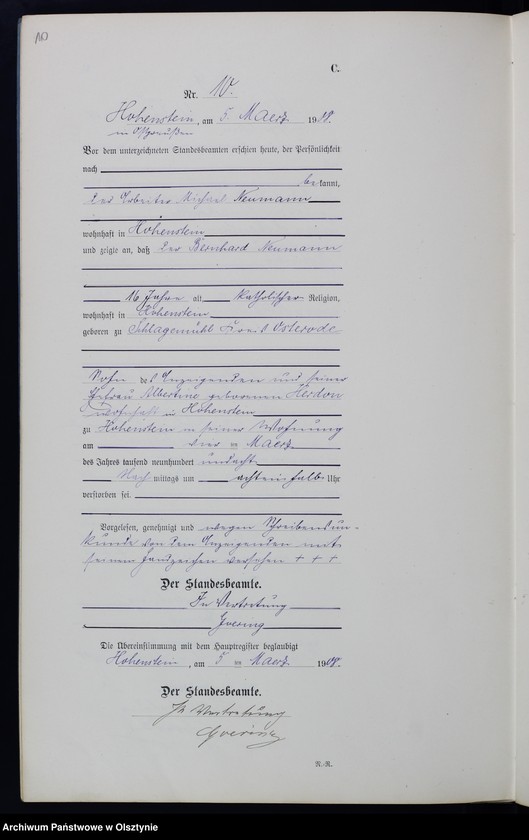 10
C.
Nr. 10.
Hohenstein, am 5. Maerz 1908.
in Ostpreußen
Vor dem unterzeichneten Standesbeamten erschien heute, der Persönlichkeit
nach
bekannt,
der Arbeiter Michael Neumann
wohnhaft in Hohenstein
und zeigte an, daß der Bernhard Neumann
16 Jahre alt, katholischer Religion,
wohnhaft in Hohenstein
geboren zu Schlagamühl Kreis Osterode
Sohn des Anzeigenden und seiner
Ehefrau Albertine geborenen
wohnhaft in Hohenstein
zu Hohenstein in seiner Wohnung
am vier ten Maerz
des Jahres tausend neunhundert und acht
Nach mittags um achteinhalb Uhr
verstorben sei.
Vorgelesen, genehmigt und wegen Schreibensun-
kunde von dem Anzeigenden mit
seinem Handzeichen versehen + + +
Der Standesbeamte.
In Vertretung
Die Übereinstimmung mit dem Hauptregister beglaubigt
Hohenstein, am 5 ten Maerz 1908.
Der Standesbeamte.
In Vertretung
N.-R.
Archiwum Państwowe w Olsztynie